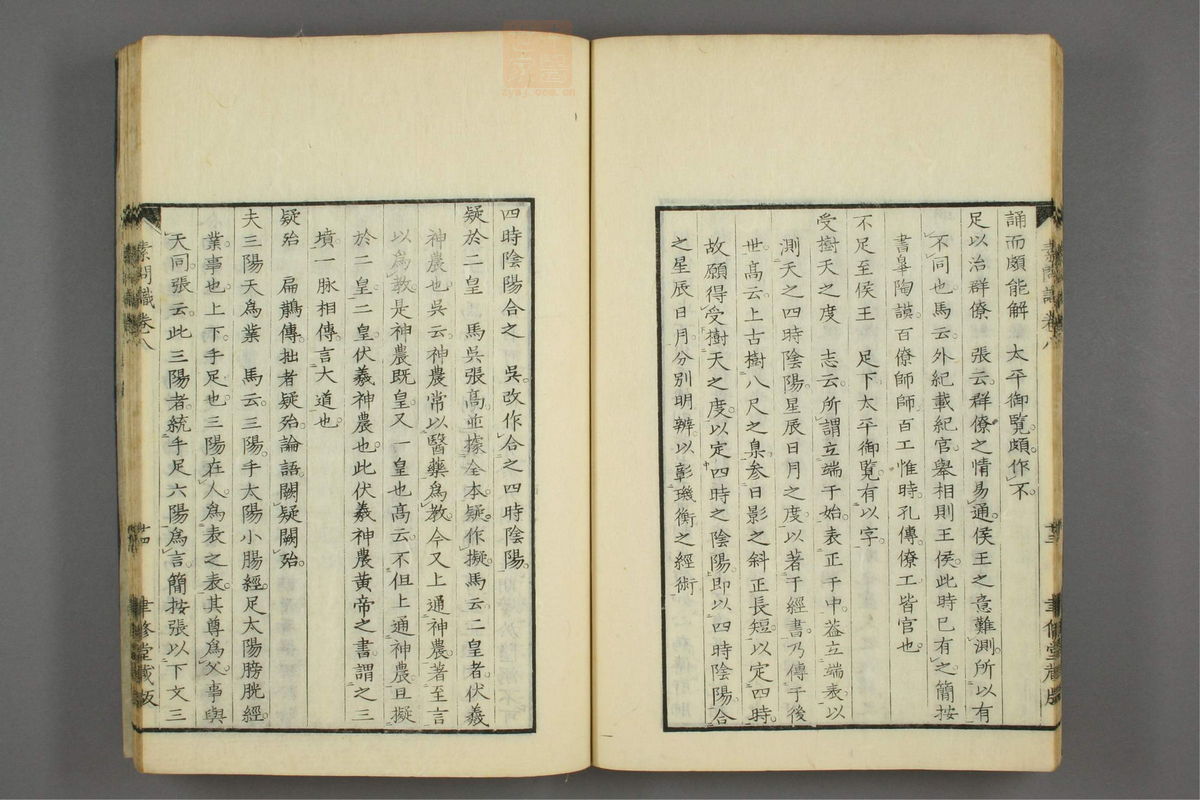 誦而頗能解 太平御覽。頗作不。
足以治群僚 張云。群僚之情易通。侯王之意難測。所以有
不同也。馬云。外紀載紀官。舉相則王侯。此時已有之。簡按
書皐陶謨。百僚師師。百工惟時。孔傳。僚工皆官也。
不足至侯王 足下。太平御覽。有以字。
受樹天之度 志云。所謂立端于始。表正于中。蓋立端表。以
測天之四時陰陽。星辰日月之度。以著于經書。乃傳于後
世。高云。上古樹八尺之臬。參日影之斜正長短。以定四時。
故願得受樹天之度。以定四時之陰陽。即以四時陰陽。合
之星辰日月。分別明辨。以彰璣衡之經術
素問識 卷八
廿三
聿修堂藏版
四時陰陽合之 吳。改作合之四時陰陽。
疑於二皇 馬吳張高。並據全本。疑作擬。馬云。二皇者。伏羲
神農也。吳云。神農常以醫藥爲教。今又上通神農。著至言
以爲教。是神農既皇。又一皇也。高云。不但上通神農。且擬
於二皇。二皇。伏羲神農也。此伏羲神農黃帝之書。謂之三
墳。一脈相傳。言大道也。
疑殆 扁鵲傳。拙者疑殆。論語。闕疑闕殆。
夫三陽天爲業 馬云。三陽。手太陽小腸經。足太陽膀胱經。
業。事也。上下。手足也。三陽在人爲表之表。其尊爲父。事與
天同。張云。此三陽者。統手足六陽爲言。簡按張以下文三
素問識 卷八
廿四
聿修堂藏版